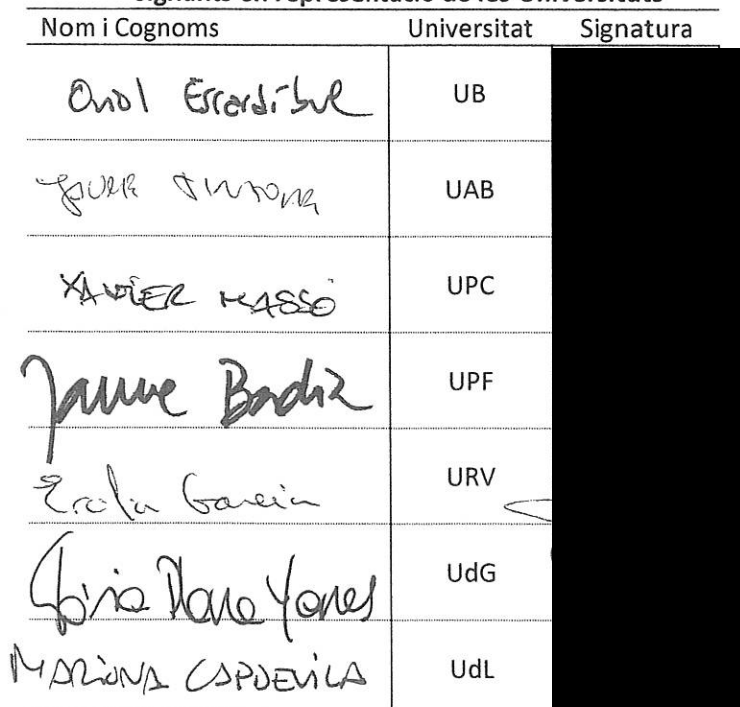 Signants en representació de les Universitats
Nom i Cognoms Universitat Signatura
Oriol Escardíbul UB
UAB
XAVIER MASSÓ UPC
Jaume Badia UPF
Garcia URV
UdG
MARIONA CAPDEVILA UdL